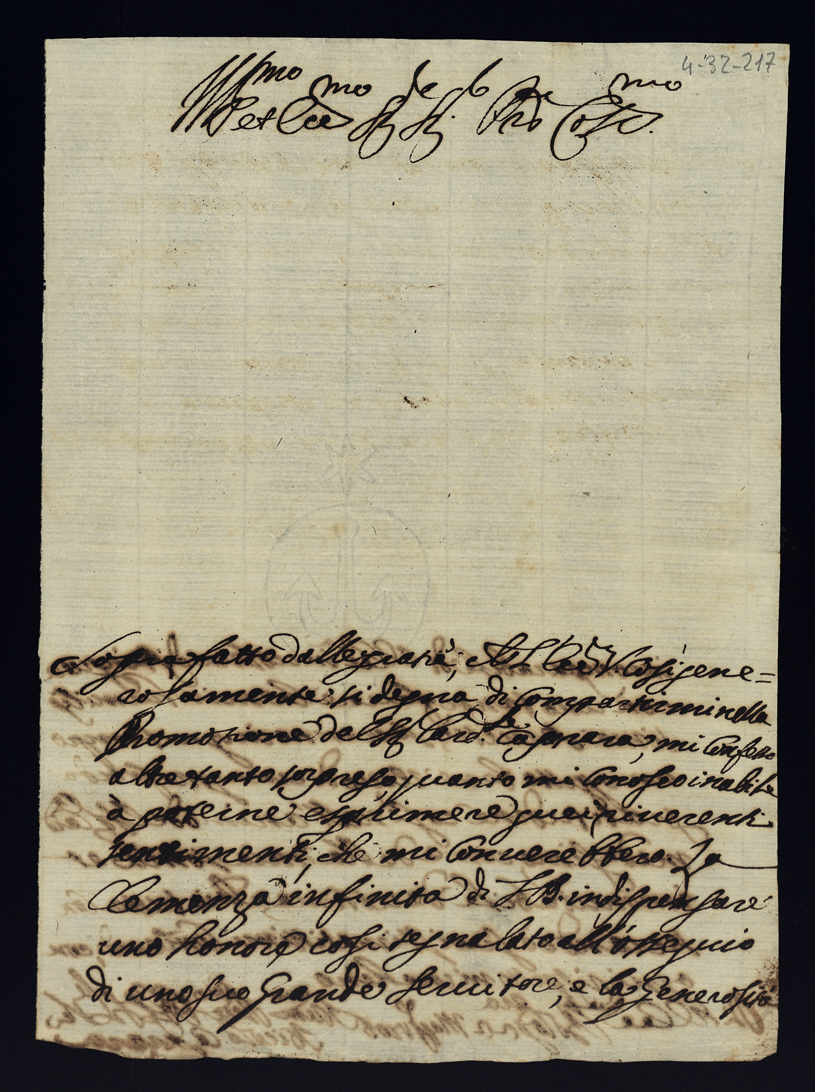 4-32-217
Ill.mo et Ecc.mo Sig.r Sig.r P.rone Col.mo
Soprafatto dalle gratie, che l'Ecc.za V. così gene=
rosamente si degna di compartirmi nella
Promotione del Sig.r Card.le Caprara, mi confesso
altretanto sorpreso, quanto mi conosco inabile
à poterne esprimere quei riverenti
sentimenti, che mi converebbero. La
Clemenza infinita di S. B. in dispensare
uno honore così segnalato all'ossequio
di un suo grande servitore, e la generosità